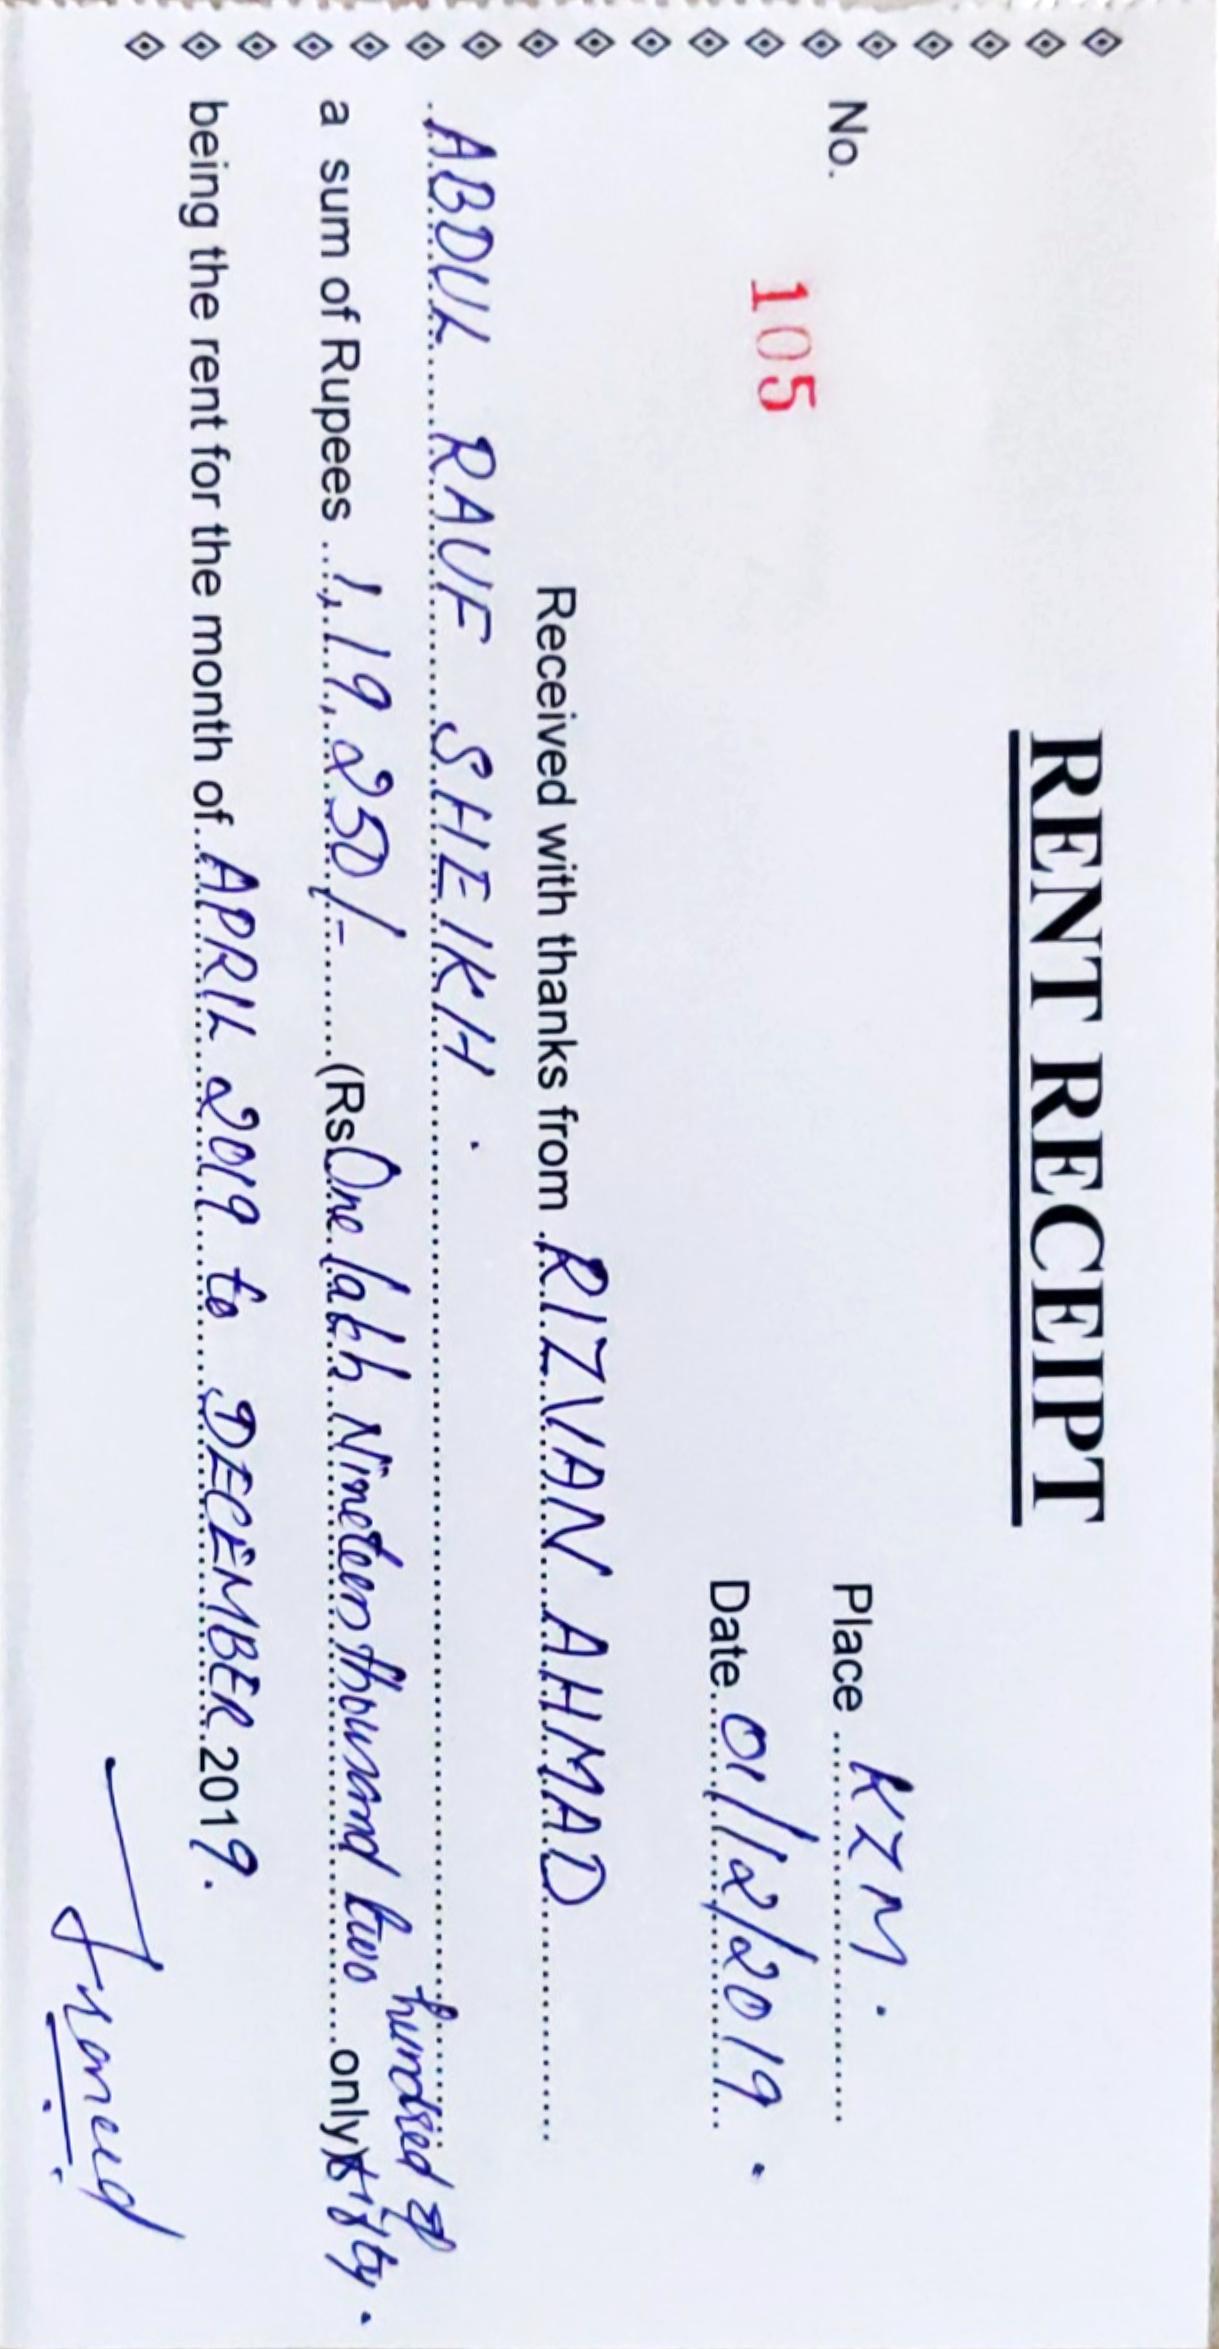 RENT RECEIPT
No.
105
Place KZM.
Date 01/12/2019.
Received with thanks from RIZVAN AHMAD
ABDUL RAUF SHEIKH.
a sum of Rupees 1,19,250/- (Rs One lakh Nineteen thousand two hundred & fifty. only)
being the rent for the month of APRIL 2019 to DECEMBER 2019.